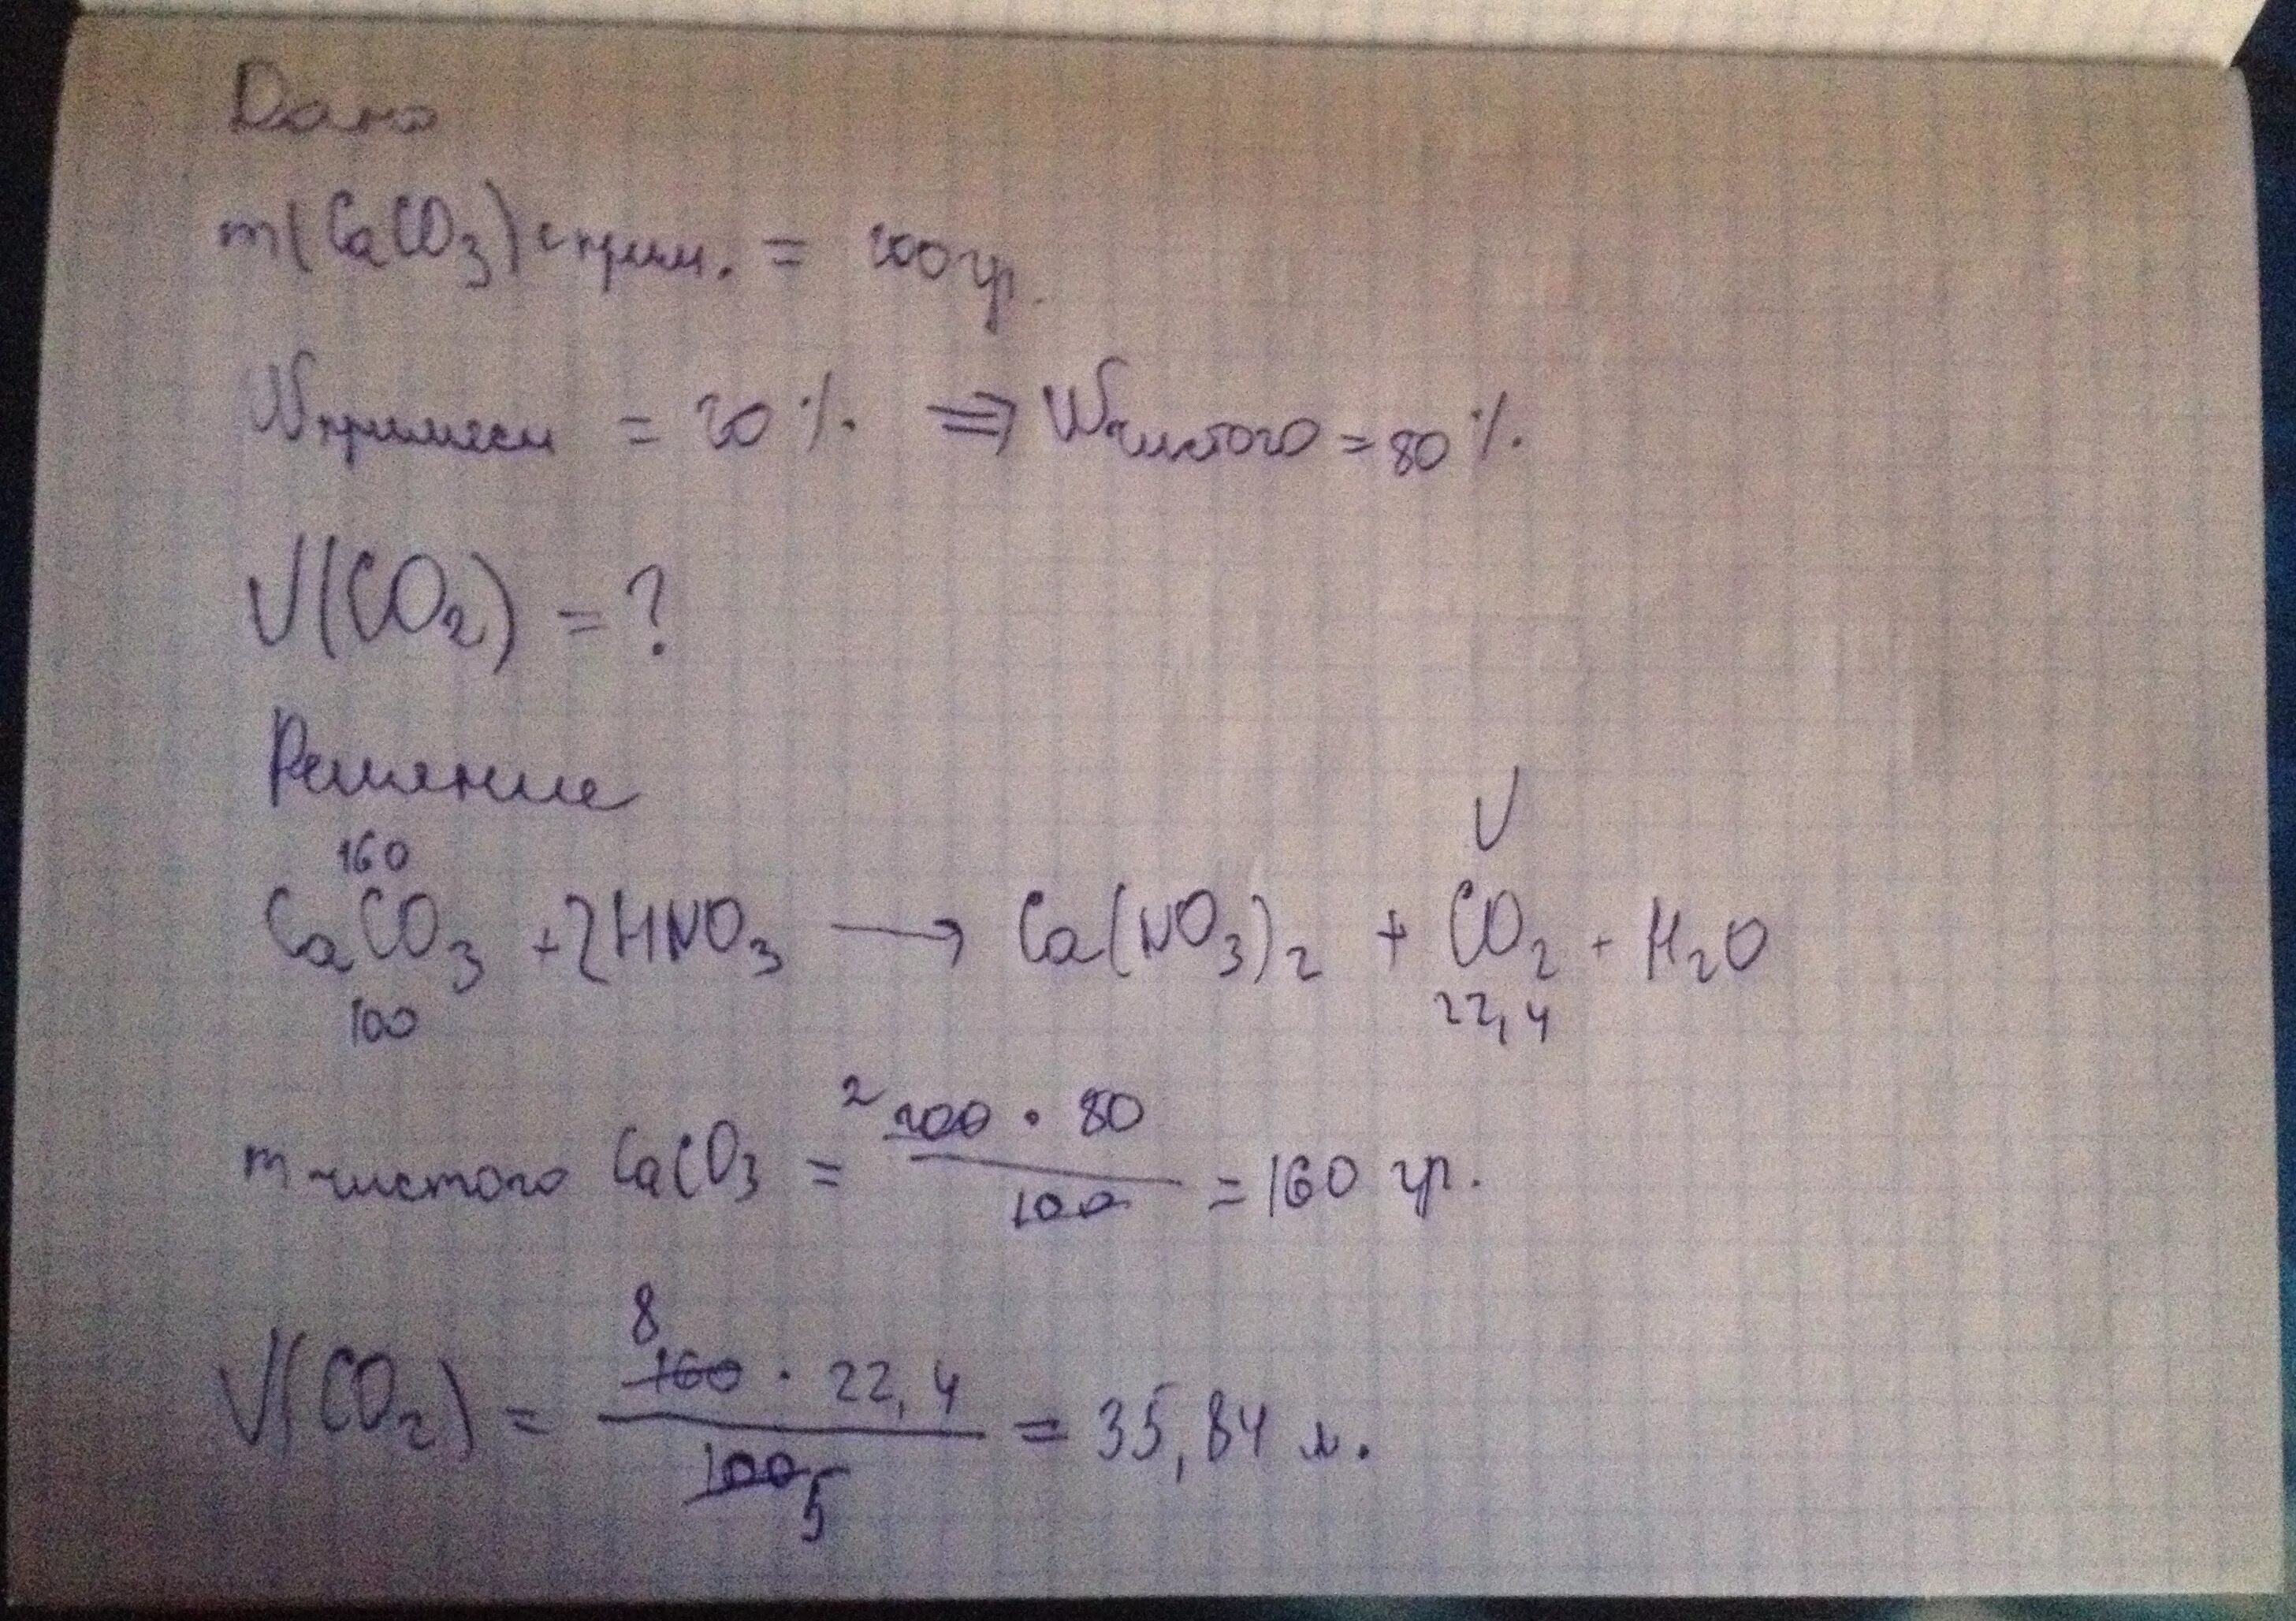 Дано
m(CaCO3) с прим. = 200 гр.
W примеси = 20 % ⇒ W чистого = 80 %.
V(CO2) = ?
Решение
160 V
CaCO3 + 2HNO3 → Ca(NO3)2 + CO2 + H2O
100 22,4
2
m чистого CaCO3 = 200 · 80 / 100 = 160 гр.
8
V(CO2) = 160 · 22,4 / 100 = 35,84 л.
5